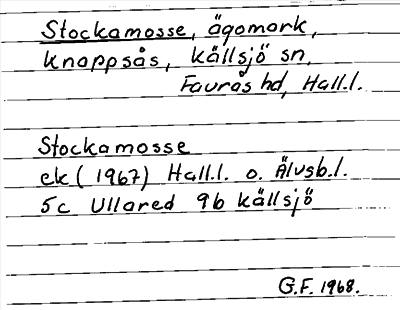 Stockamosse, ägomark,
Knappsås, Källsjö sn,
Faurås hd, Hall.l.
Stockamosse
ek (1967) Hall.l. o. Älvsb.l.
5c Ullared 9b Källsjö
G.F. 1968.